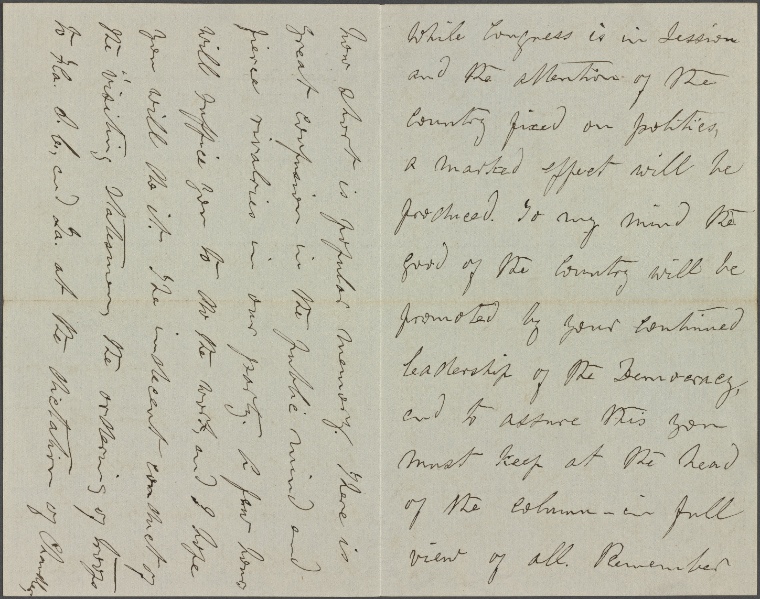 While Congress is in Session
and the attention of the
Country fixed on politics,
a marked effect will be
produced. To my mind the
good of the Country will be
promoted by your continued
leadership of the Democracy,
and to assure this you
must keep at the head
of the column – in full
view of all. Remember
how short is popular memory. There is
great confusion in the public mind and
fierce rivalries in our party. A few hours
will suffice you to do the work, and I hope
you will do it. The indecent conduct of
the visiting Statesmen, the ordering of troops
to Fla. S. C., and La. at the dictation of Chandler